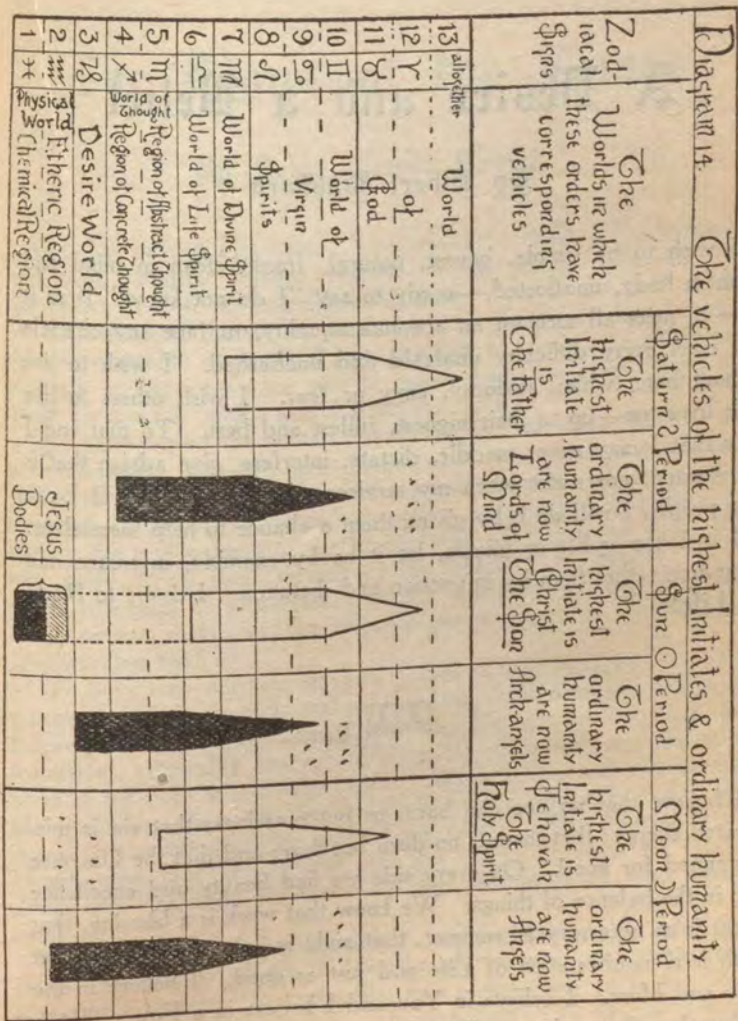 Diagram 14. The vehicles of the highest Initiates & ordinary humanity
Zod-
iacal
Signs
The
Worlds in which
these orders have
corresponding
vehicles
Saturn ♄ Period
Sun ☉ Period
Moon ☽ Period
The
highest
Initiate
is
The Father
The
ordinary
humanity
are now
Lords of
Mind
The
highest
Initiate is
Christ
The Son
The
ordinary
humanity
are now
Archangels
The
highest
Initiate is
Jehovah
The
Holy Spirit
The
ordinary
humanity
are now
Angels
13 altogether
12 ♈
11 ♉
10 ♊
9 ♋
8 ♌
7 ♍
6 ♎
5 ♏
4 ♐
3 ♑
2 ♒
1 ♓
World
of
God
World of
Virgin
Spirits
World of Divine Spirit
World of Life Spirit
World of Thought
Region of Abstract Thought
Region of Concrete Thought
Desire World
Physical
World
Etheric Region
Chemical Region
Jesus
Bodies